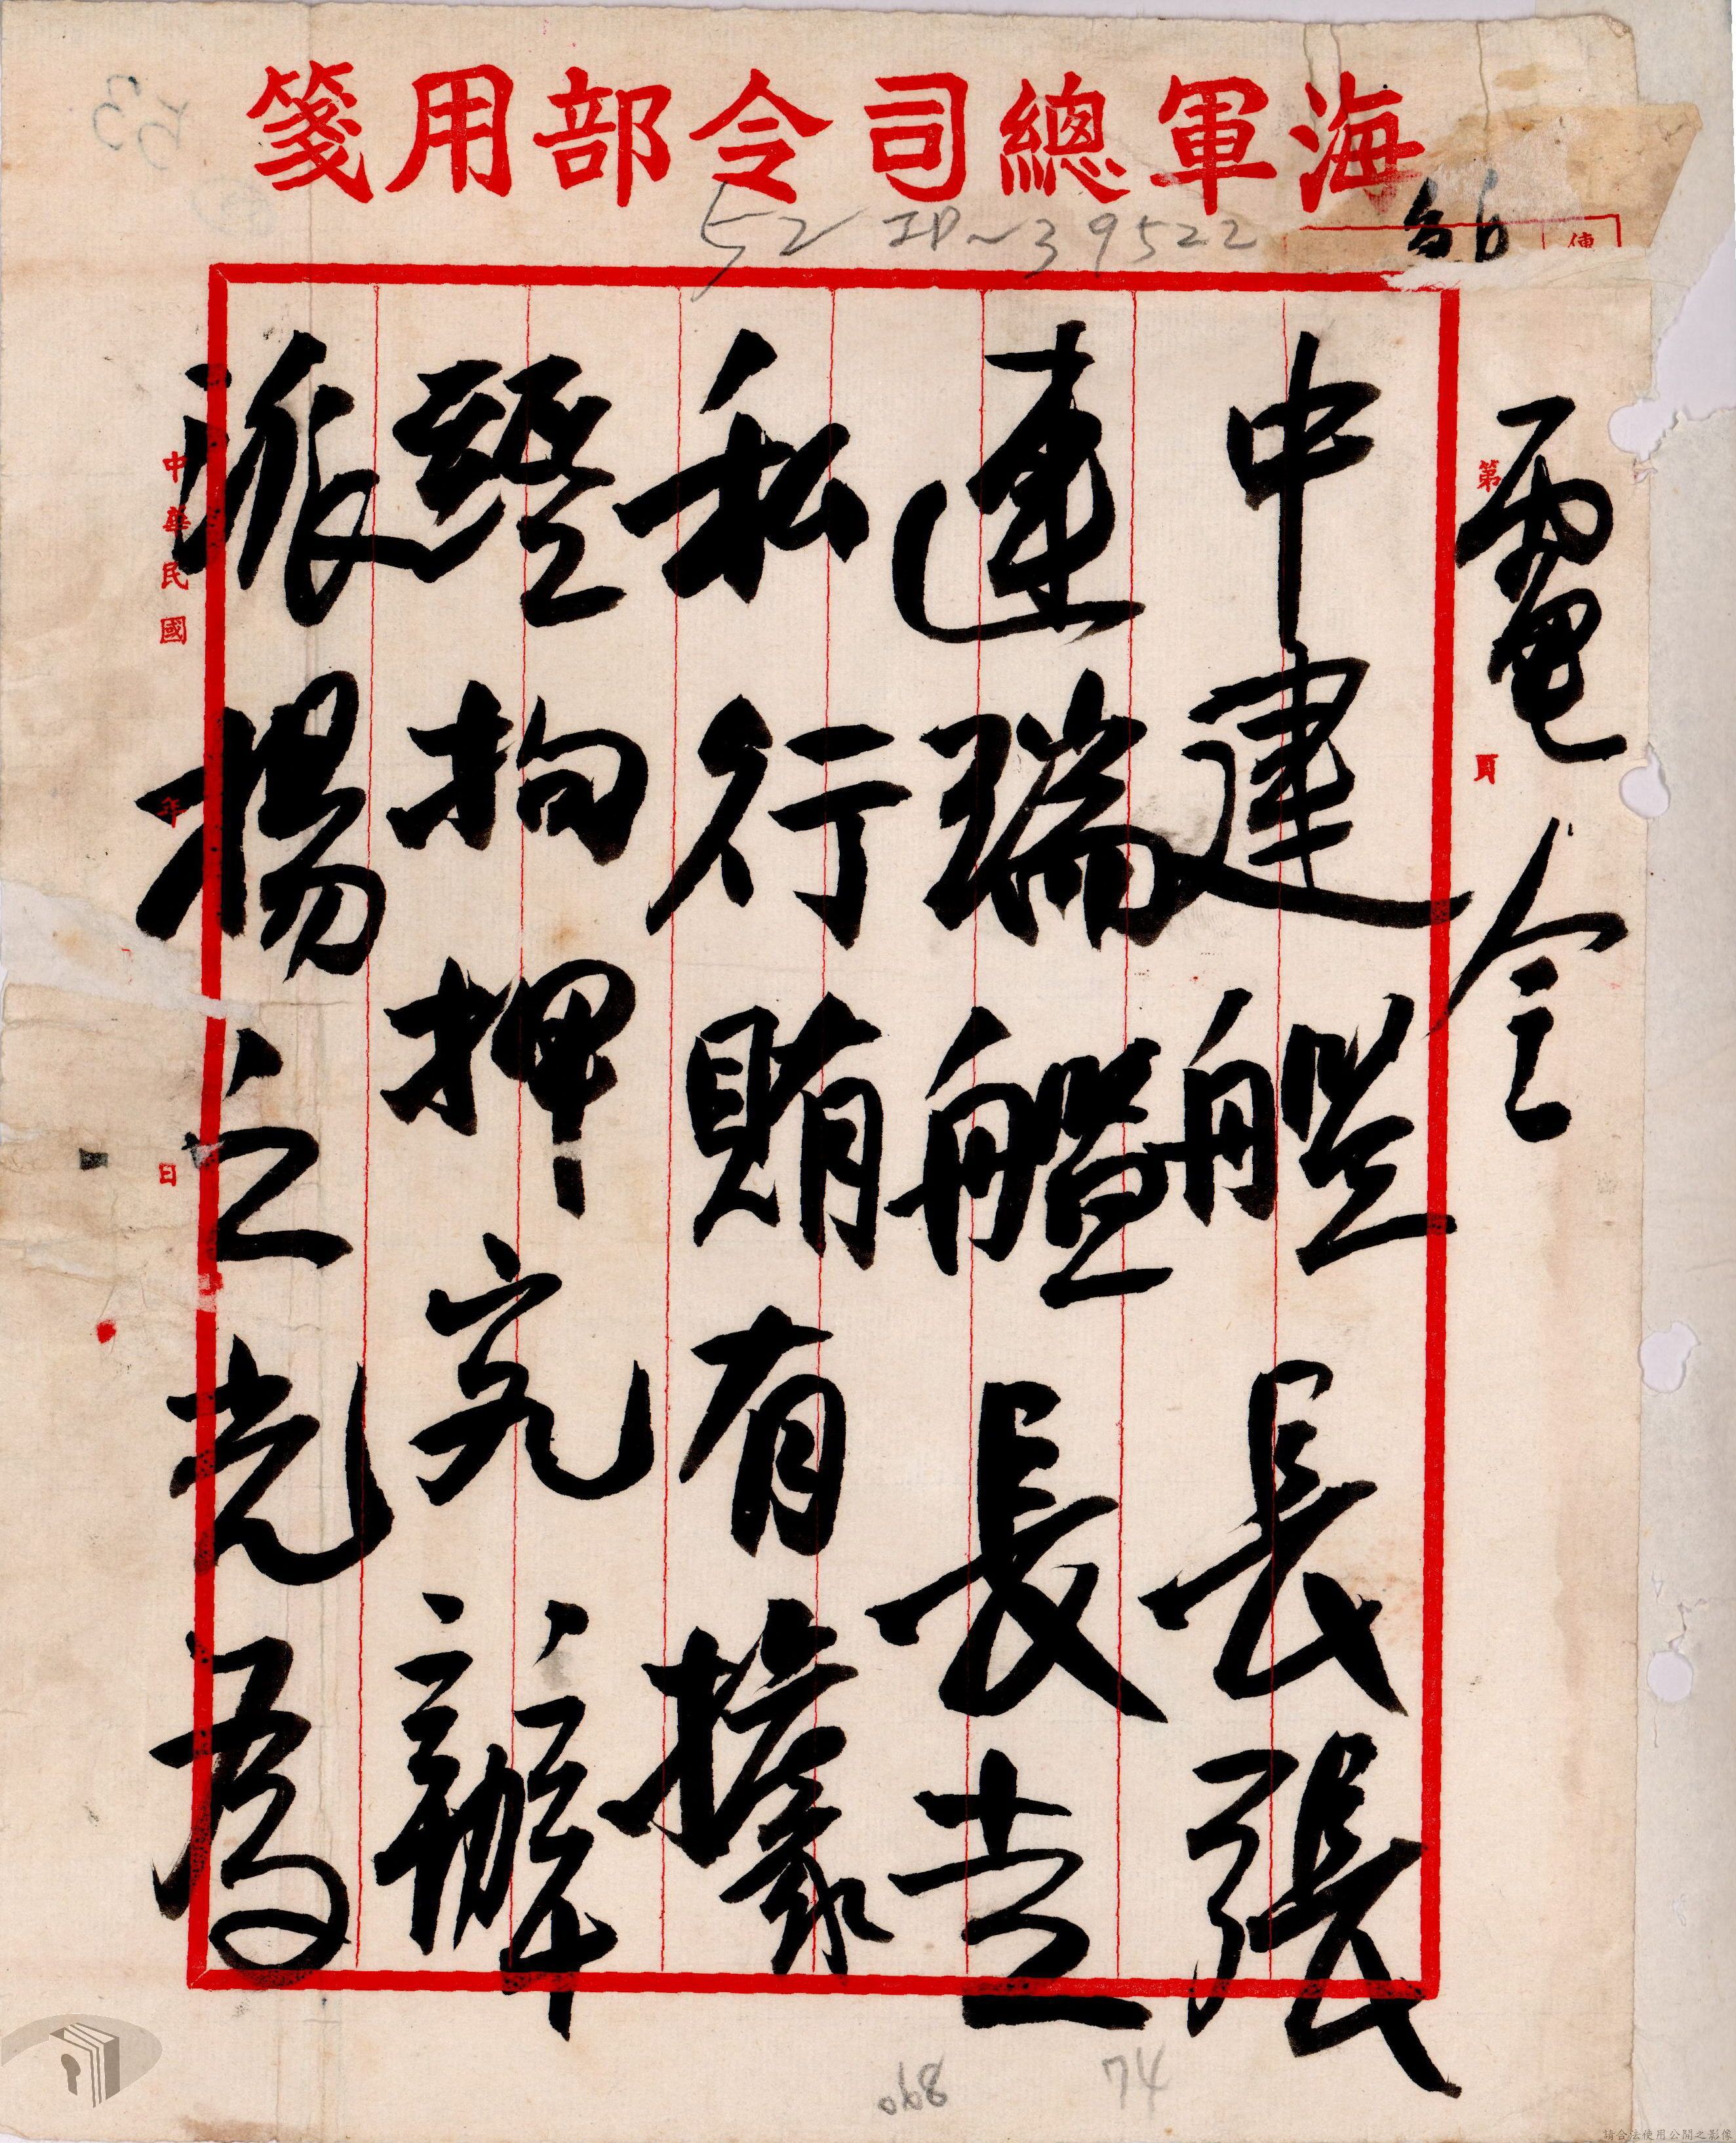 海軍總司令部用箋
第 頁
電令
中建艦長張
連瑞艦長走
私行賄有據
拘押究辦
派楊之光為
中華民國 年 日
74
請合法使用公開之影像